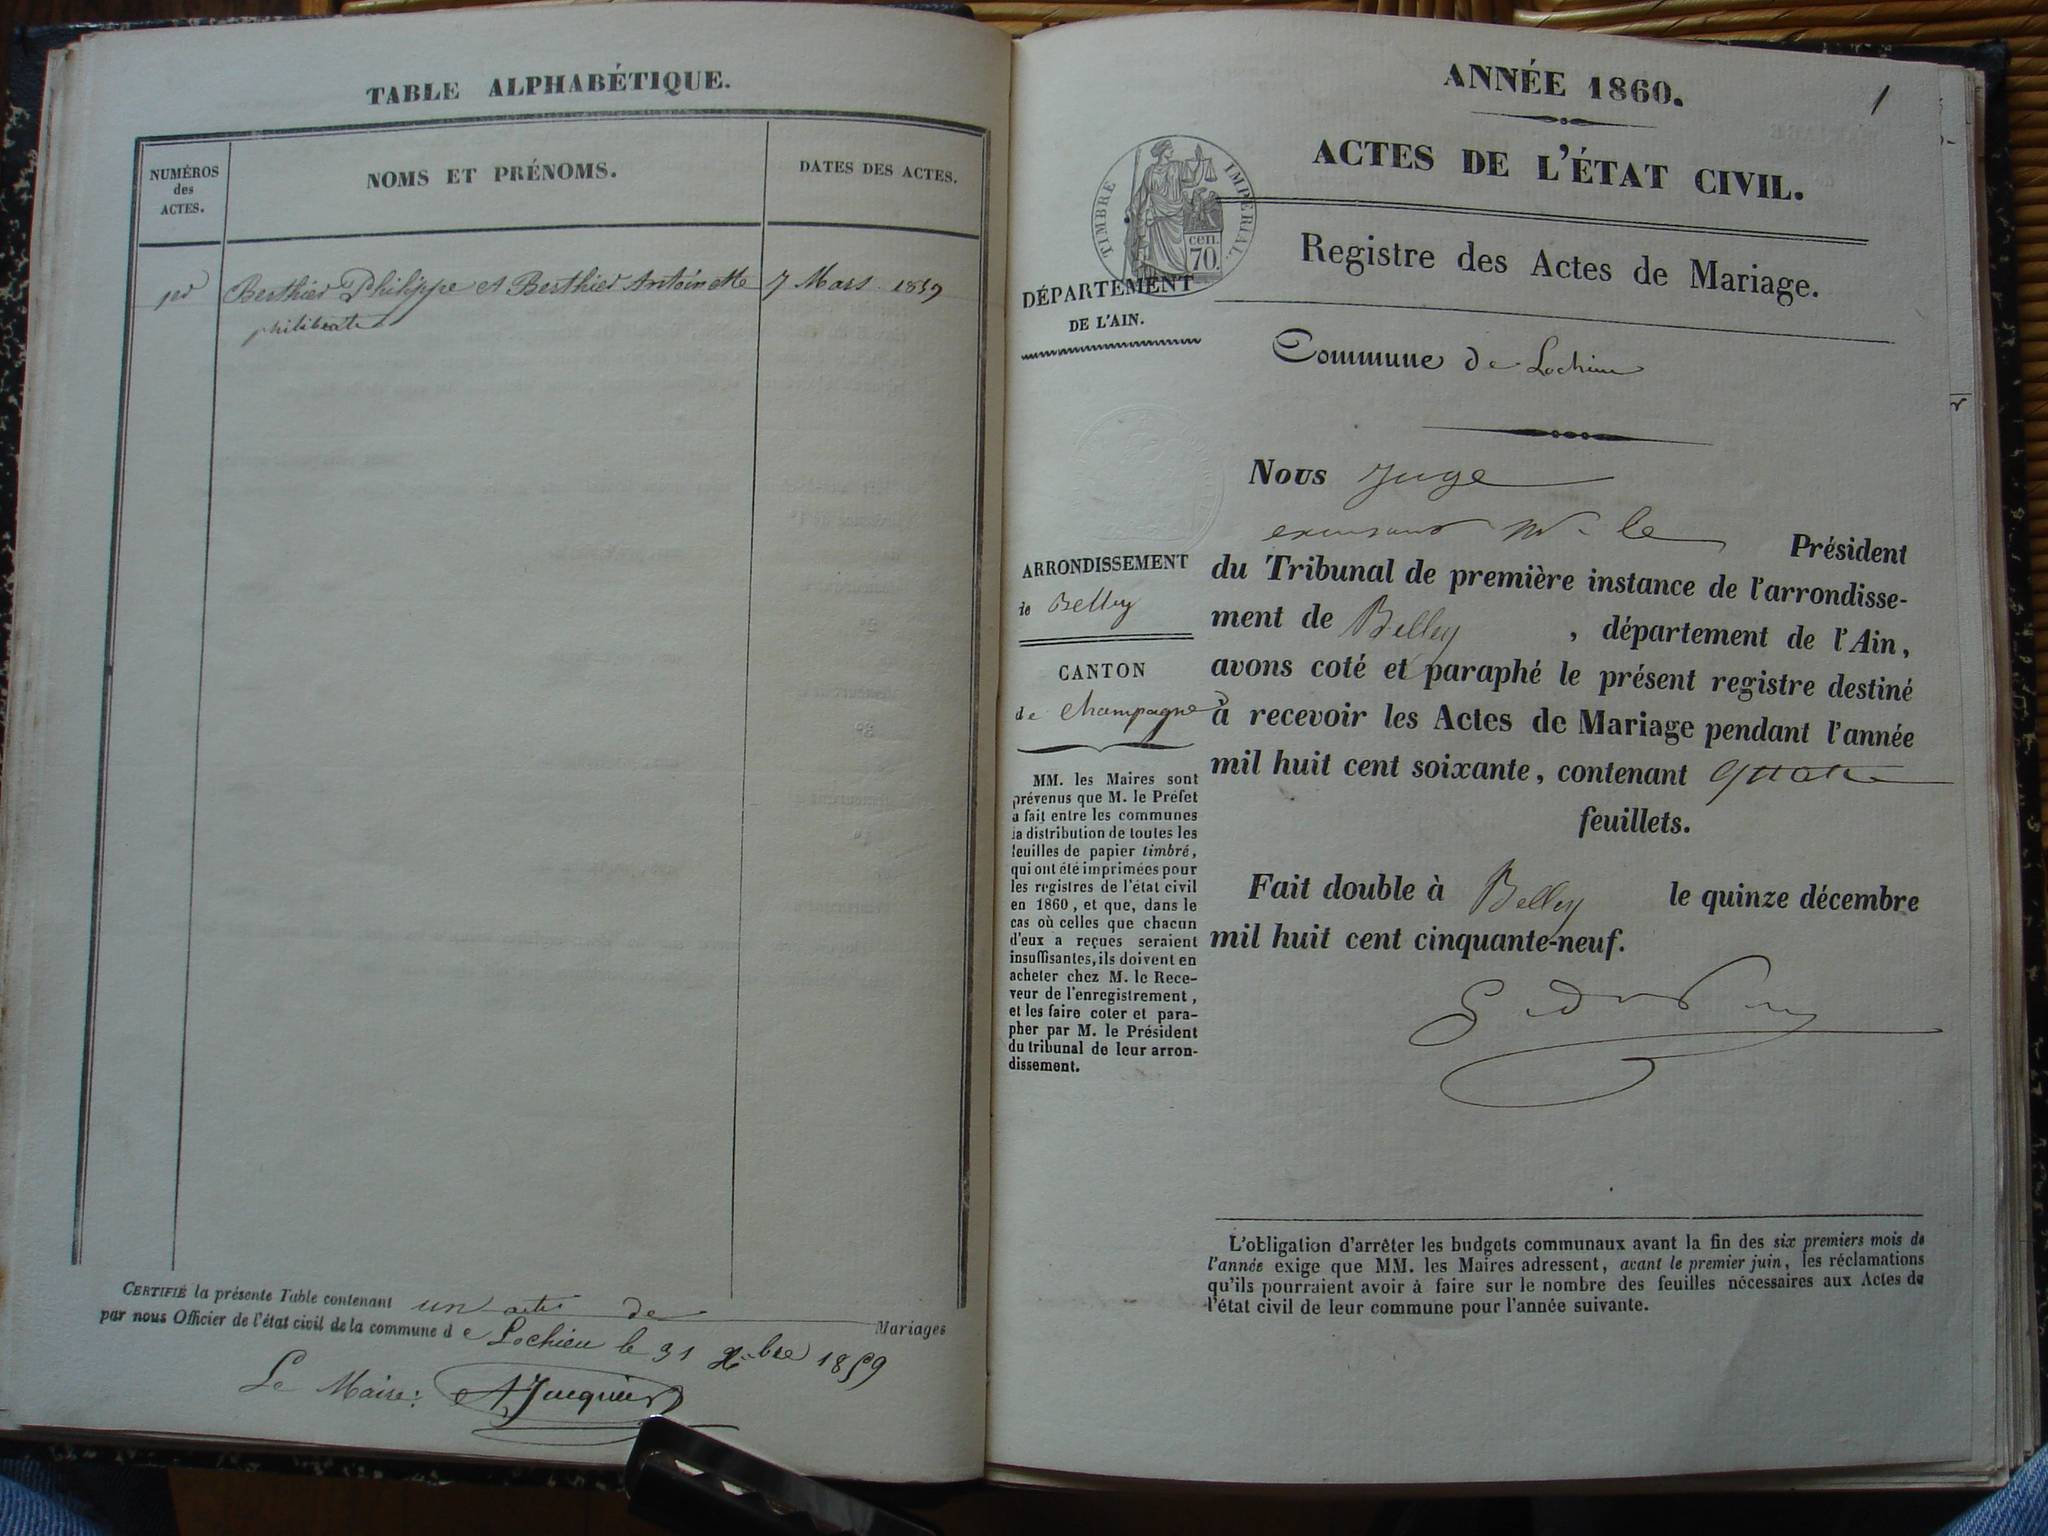 TABLE ALPHABÉTIQUE.
NUMÉROS
des
ACTES.
NOMS ET PRÉNOMS.
DATES DES ACTES.
1er Berthier Philippe et Berthier Antoinette 7 Mars 1859
philiberte
CERTIFIÉ la présente Table contenant un acte de Mariages
par nous Officier de l'état civil de la commune de Lochieu le 31 Xbre 1859
Le Maire: A Jacquier
ANNÉE 1860.
1
ACTES DE L'ÉTAT CIVIL.
TIMBRE IMPERIAL.
cen.
70.
Registre des Actes de Mariage.
DÉPARTEMENT
DE L'AIN.
Commune de Lochieu
Nous Juge
M. le Président
du Tribunal de première instance de l'arrondisse-
ment de Belley, département de l'Ain,
avons coté et paraphé le présent registre destiné
à recevoir les Actes de Mariage pendant l'année
mil huit cent soixante, contenant quatre
feuillets.
Fait double à Belley le quinze décembre
mil huit cent cinquante-neuf.
ARRONDISSEMENT
de Belley
CANTON
de Champagne
MM. les Maires sont
prévenus que M. le Préfet
a fait entre les communes
la distribution de toutes les
feuilles de papier timbré,
qui ont été imprimées pour
les registres de l'état civil
en 1860, et que, dans le
cas où celles que chacun
d'eux a reçues seraient
insuffisantes, ils doivent en
acheter chez M. le Rece-
veur de l'enregistrement,
et les faire coter et para-
pher par M. le Président
du tribunal de leur arron-
dissement.
L'obligation d'arrêter les budgets communaux avant la fin des six premiers mois de
l'année exige que MM. les Maires adressent, avant le premier juin, les réclamations
qu'ils pourraient avoir à faire sur le nombre des feuilles nécessaires aux Actes de
l'état civil de leur commune pour l'année suivante.